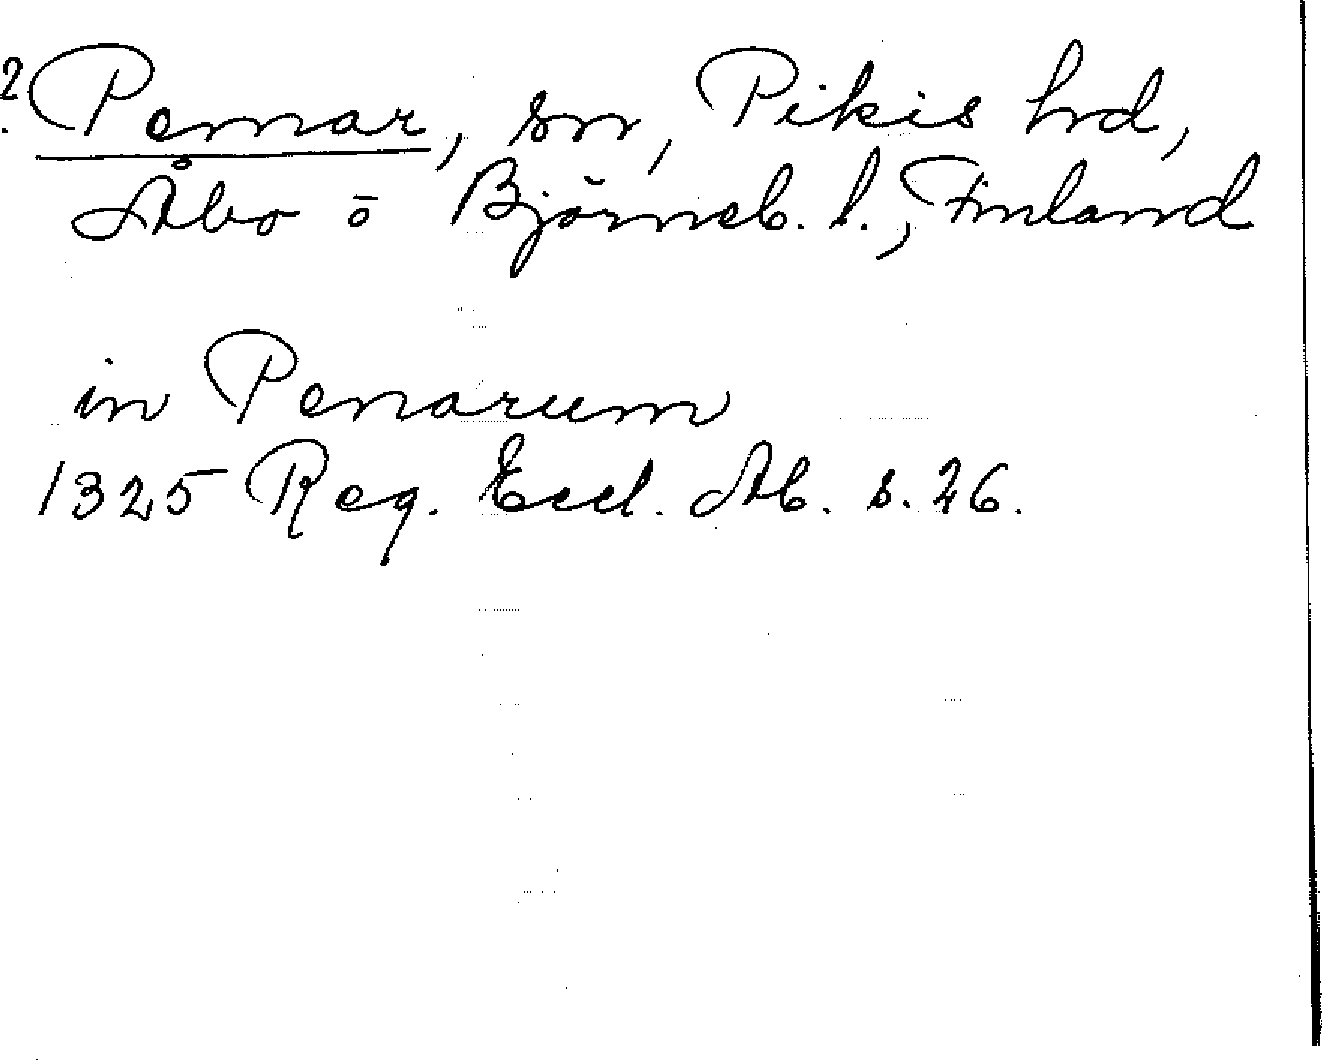 2. Pemar, sn, Pikis hrd,
Åbo o Björneb. l., Finland
in Penarum
1325 Reg. Eccl. Ab. s. 26.